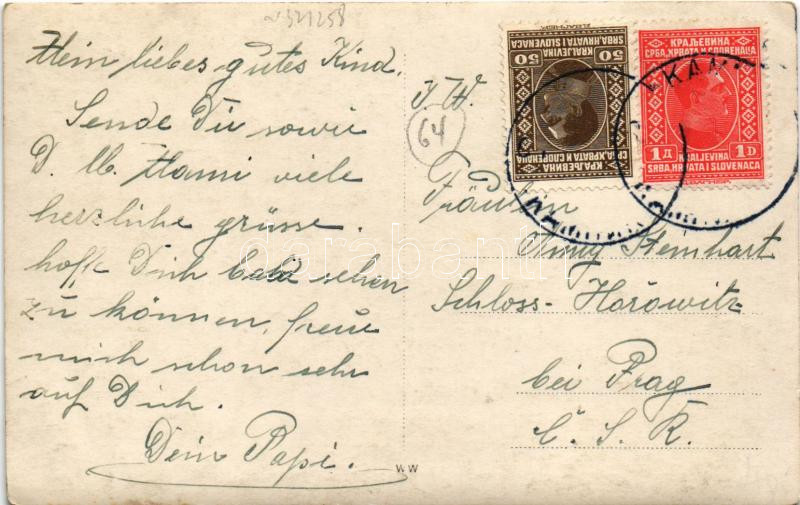 n 321258
Mein liebes gutes Kind.
Sende Dir sowie
D. lb. Mami viele
herzliche grüsse.
hoffe Dich bald sehen
zu können, freue
mich schon sehr
auf Dich.
Dein Papi.
64
Fräulein
Anny Steinhart
Schloss-Horowitz
bei Prag
Č. S. R.
W W
50 50
KRALJEVINA
SRBA, HRVATA I SLOVENACA
КРАЉЕВИНА
СРБА, ХРВАТА И СЛОВЕНАЦА
КРАЉЕВИНА
СРБА, ХРВАТА И СЛОВЕНАЦА
1Д 1D
KRALJEVINA
SRBA, HRVATA I SLOVENACA
darabanth